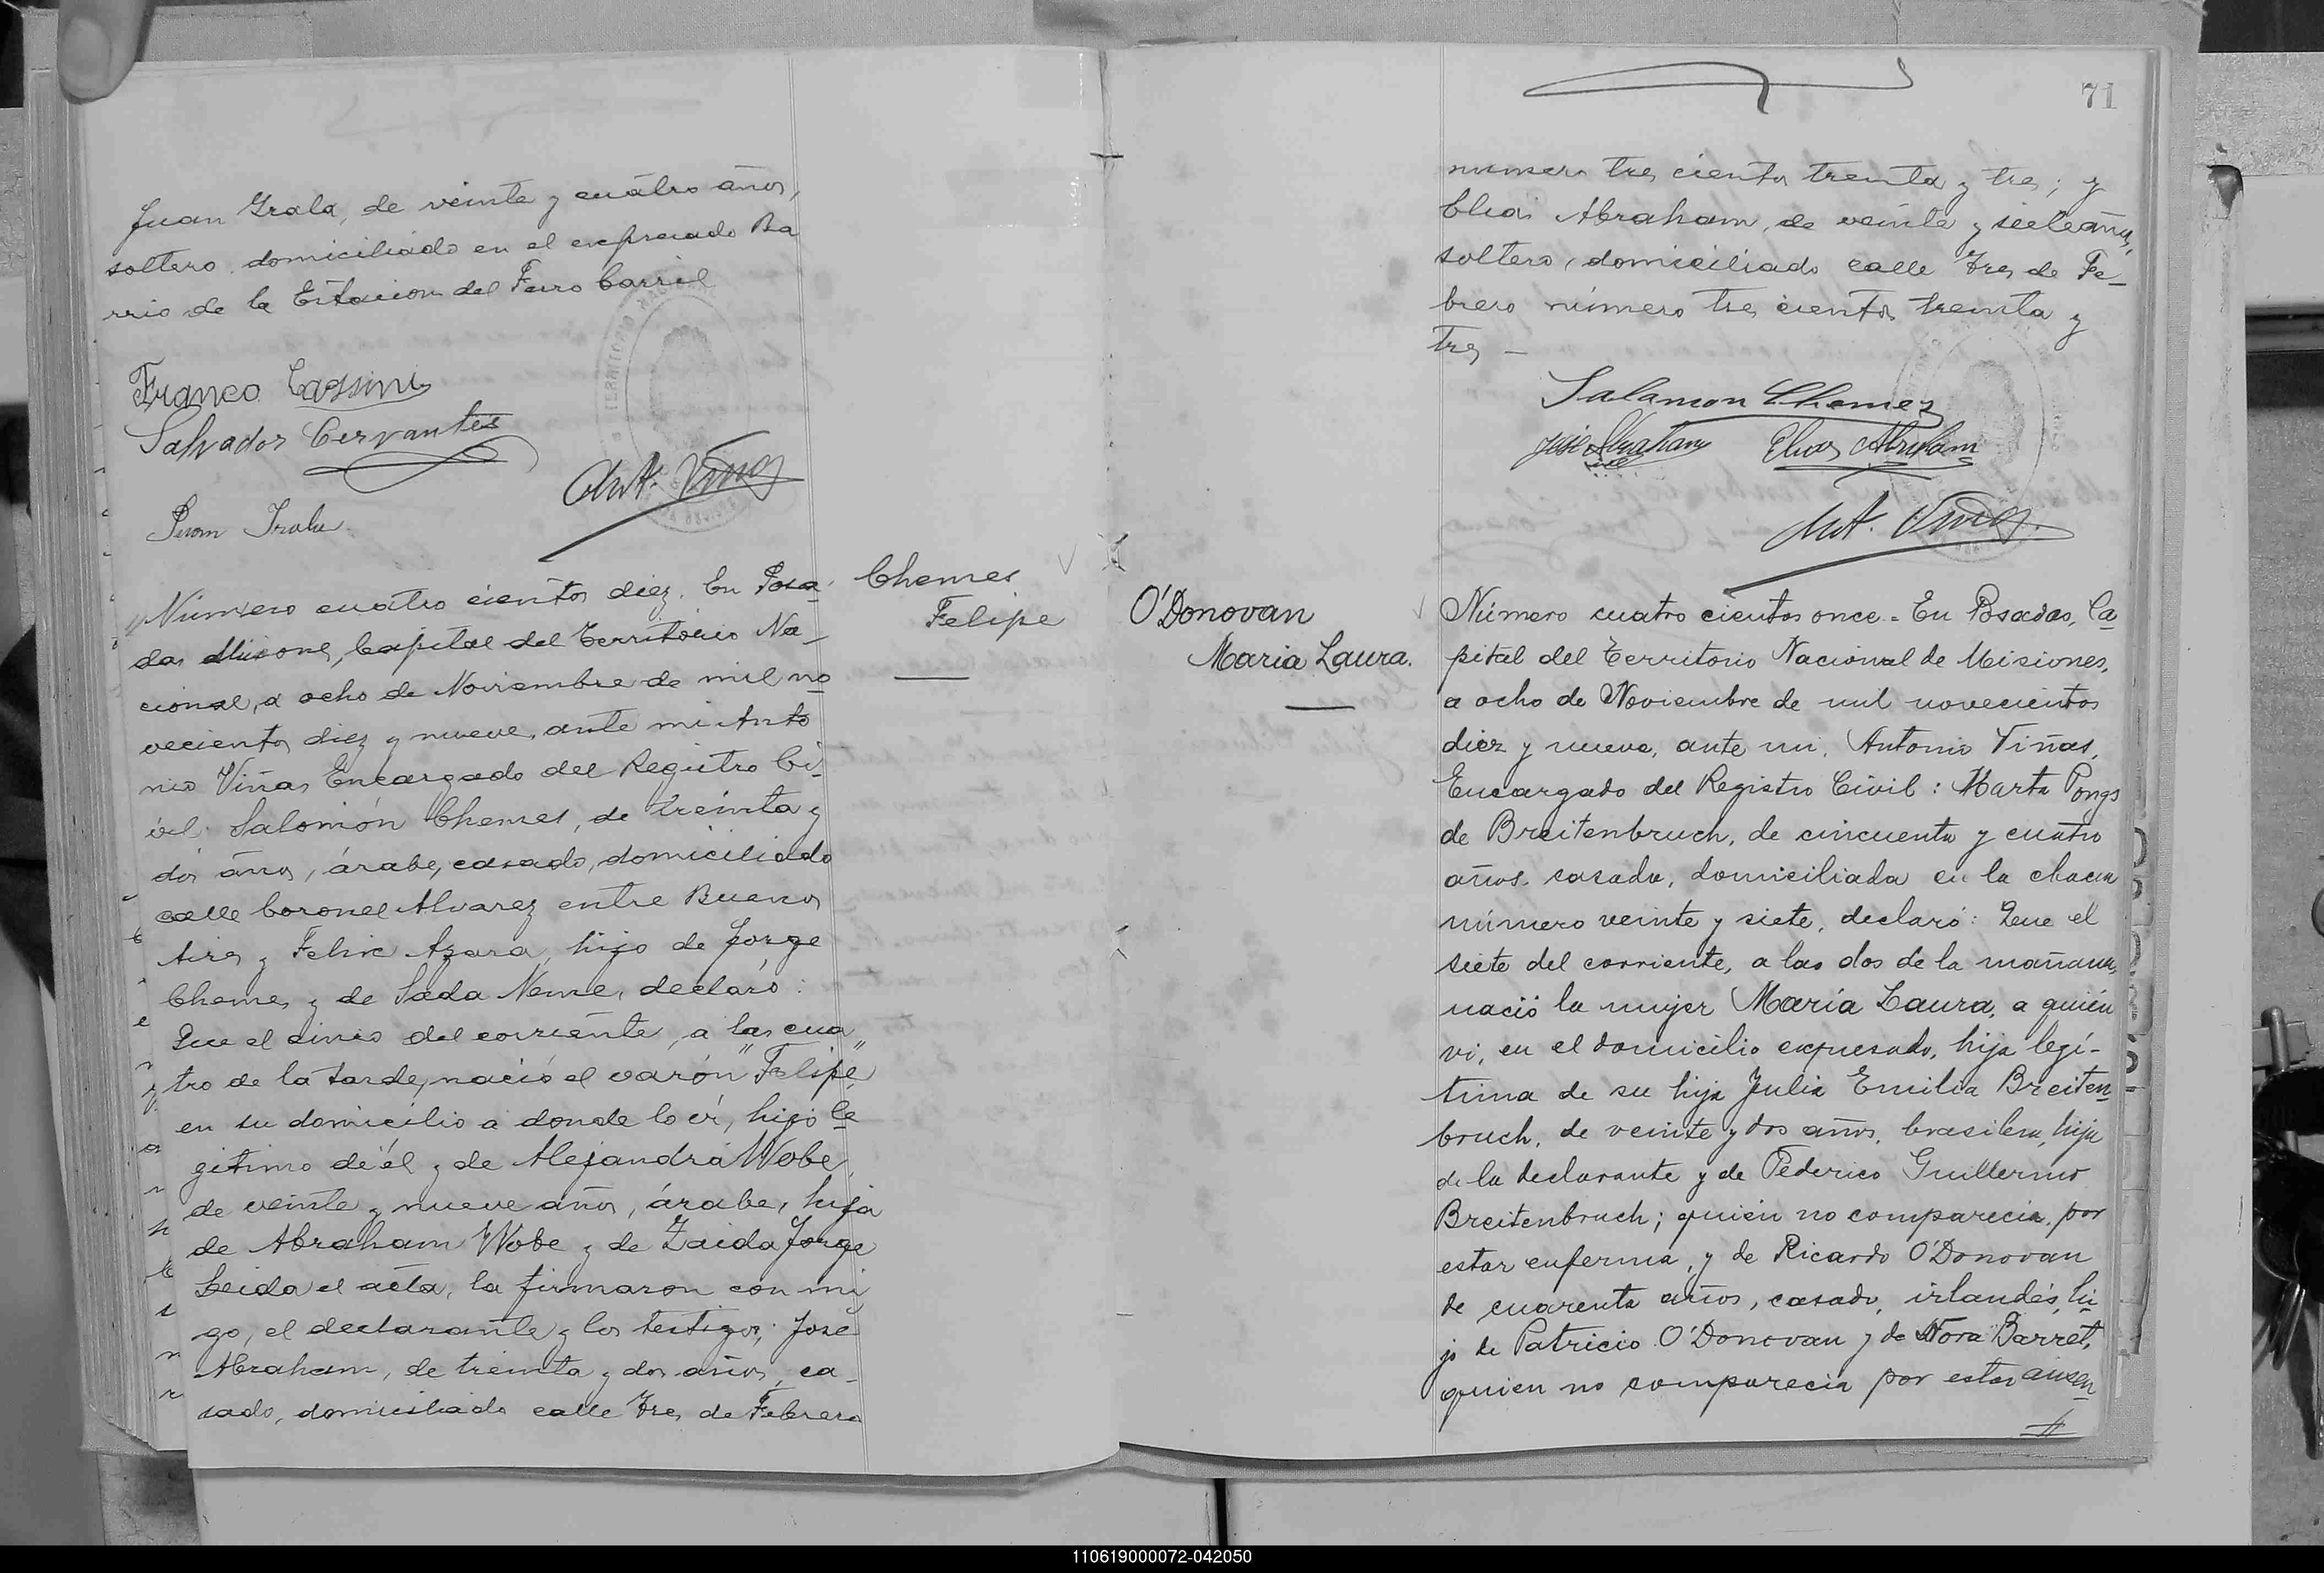 Juan Irala, de veinte y cuatro años,
soltero, domiciliado en el expresado Ba
rrio de la Estacion del Ferro Carril
Franco Cassini
Salvador Cervantes
Ant. Viñas
Juan Irala
Número cuatro cientos diez. En Posa-
das Misiones, Capital del Territorio Na-
cional, a ocho de Noviembre de mil no-
vecientos diez y nueve, ante mi Anto
nio Viñas Encargado del Registro Ci-
vil: Salomón Chemes, de treinta y
dos años, árabe, casado, domiciliado
calle Coronel Alvarez entre Buenos
Aires y Felix Azara, hijo de Jorge
Chemes y de Sada Neme, declaró:
Que el cinco del corriente, a las cua
tro de la tarde, nació el varón "Felipe",
en su domicilio a donde lo vi, hijo le-
gitimo de él y de Alejandra Wobe,
de veinte y nueve años, árabe, hija
de Abraham Wobe y de Zaida Jorge
Leida el acta, la firmaron con mi
go, el declarante y los testigos: José
Abraham, de treinta y dos años, ca-
sado, domiciliado calle Tres de Febrero
Chemes
Felipe
71
numero tres cientos treinta y tres; y
Elias Abraham, de veinte y siete años,
soltero, domiciliado calle Tres de Fe-
brero número tres cientos treinta y
tres –
Salamon Chemes
José Abraham Elias Abraham
Ant. Viñas
O'Donovan
Maria Laura.
Número cuatro cientos once.- En Posadas, Ca-
pital del Territorio Nacional de Misiones,
a ocho de Noviembre de mil novecientos
diez y nueve, ante mi, Antonio Viñas,
Encargado del Registro Civil: Marta Pongs
de Breitenbruch, de cincuenta y cuatro
años, casada, domiciliada en la chacra
número veinte y siete, declaró: Que el
siete del corriente, a las dos de la mañana,
nació la mujer María Laura, a quién
vi, en el domicilio expresado, hija legí-
tima de su hija Julia Emilia Breiten-
bruch, de veinte y dos años, brasilera, hija
de la declarante y de Federico Guillermo
Breitenbruch; quien no comparecia por
estar enferma, y de Ricardo O'Donovan
de cuarenta años, casado, irlandés, hi-
jo de Patricio O'Donovan y de Nora Barret,
quien no comparecia por estar ausen-
110619000072-042050